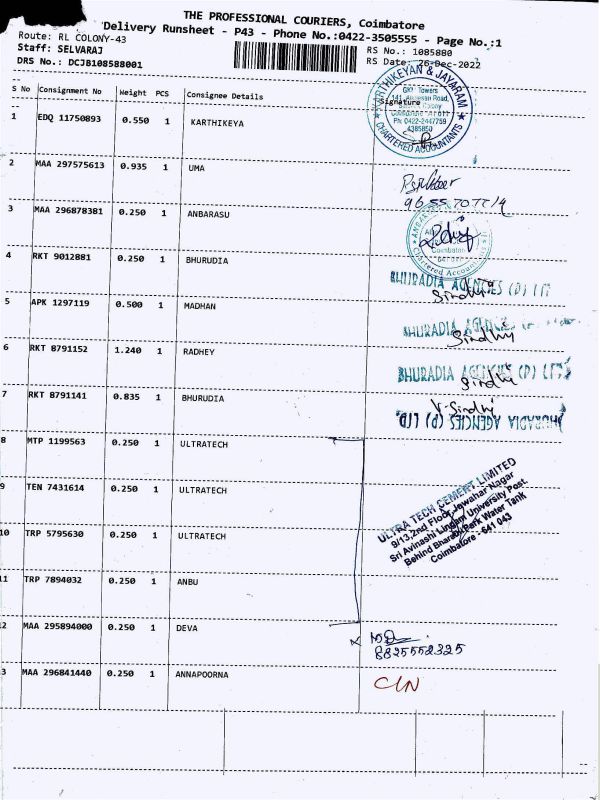 THE PROFESSIONAL COURIERS, Coimbatore
Delivery Runsheet - P43 - Phone No.:0422-3505555 - Page No.:1
Route: RL COLONY-43
RS No.: 1085880
Staff: SELVARAJ
RS Date: 26-Dec-2022
DRS No.: DCJB108588001
S No Consignment No Weight PCS Consignee Details Signature
KARTHIKEYAN & JAYARAM
CHARTERED ACCOUNTANTS
1 EDQ 11750893 0.550 1 KARTHIKEYA
2 MAA 297575613 0.935 1 UMA
3 MAA 296878381 0.250 1 ANBARASU
Chartered Accountants
4 RKT 9012881 0.250 1 BHURUDIA
BHURADIA AGENCIES (P) LTD
Sindhy
5 APK 1297119 0.500 1 MADHAN
BHURADIA AGENCIES
Sindhy
6 RKT 8791152 1.240 1 RADHEY
BHURADIA AGENCIES (P) LTD
Sindhy
7 RKT 8791141 0.835 1 BHURUDIA
V. Sindhy
BHURADIA AGENCIES (P) LTD.
8 MTP 1199563 0.250 1 ULTRATECH
9 TEN 7431614 0.250 1 ULTRATECH
ULTRA TECH CEMENT LIMITED
9/13,2nd Floor, Jawahar Nagar
Sri Avinashi Lingam University Post
Behind Bharathi Park Water Tank
Coimbatore - 641 043
10 TRP 5795630 0.250 1 ULTRATECH
11 TRP 7894032 0.250 1 ANBU
2 MAA 295894000 0.250 1 DEVA
8825552325
3 MAA 296841440 0.250 1 ANNAPOORNA